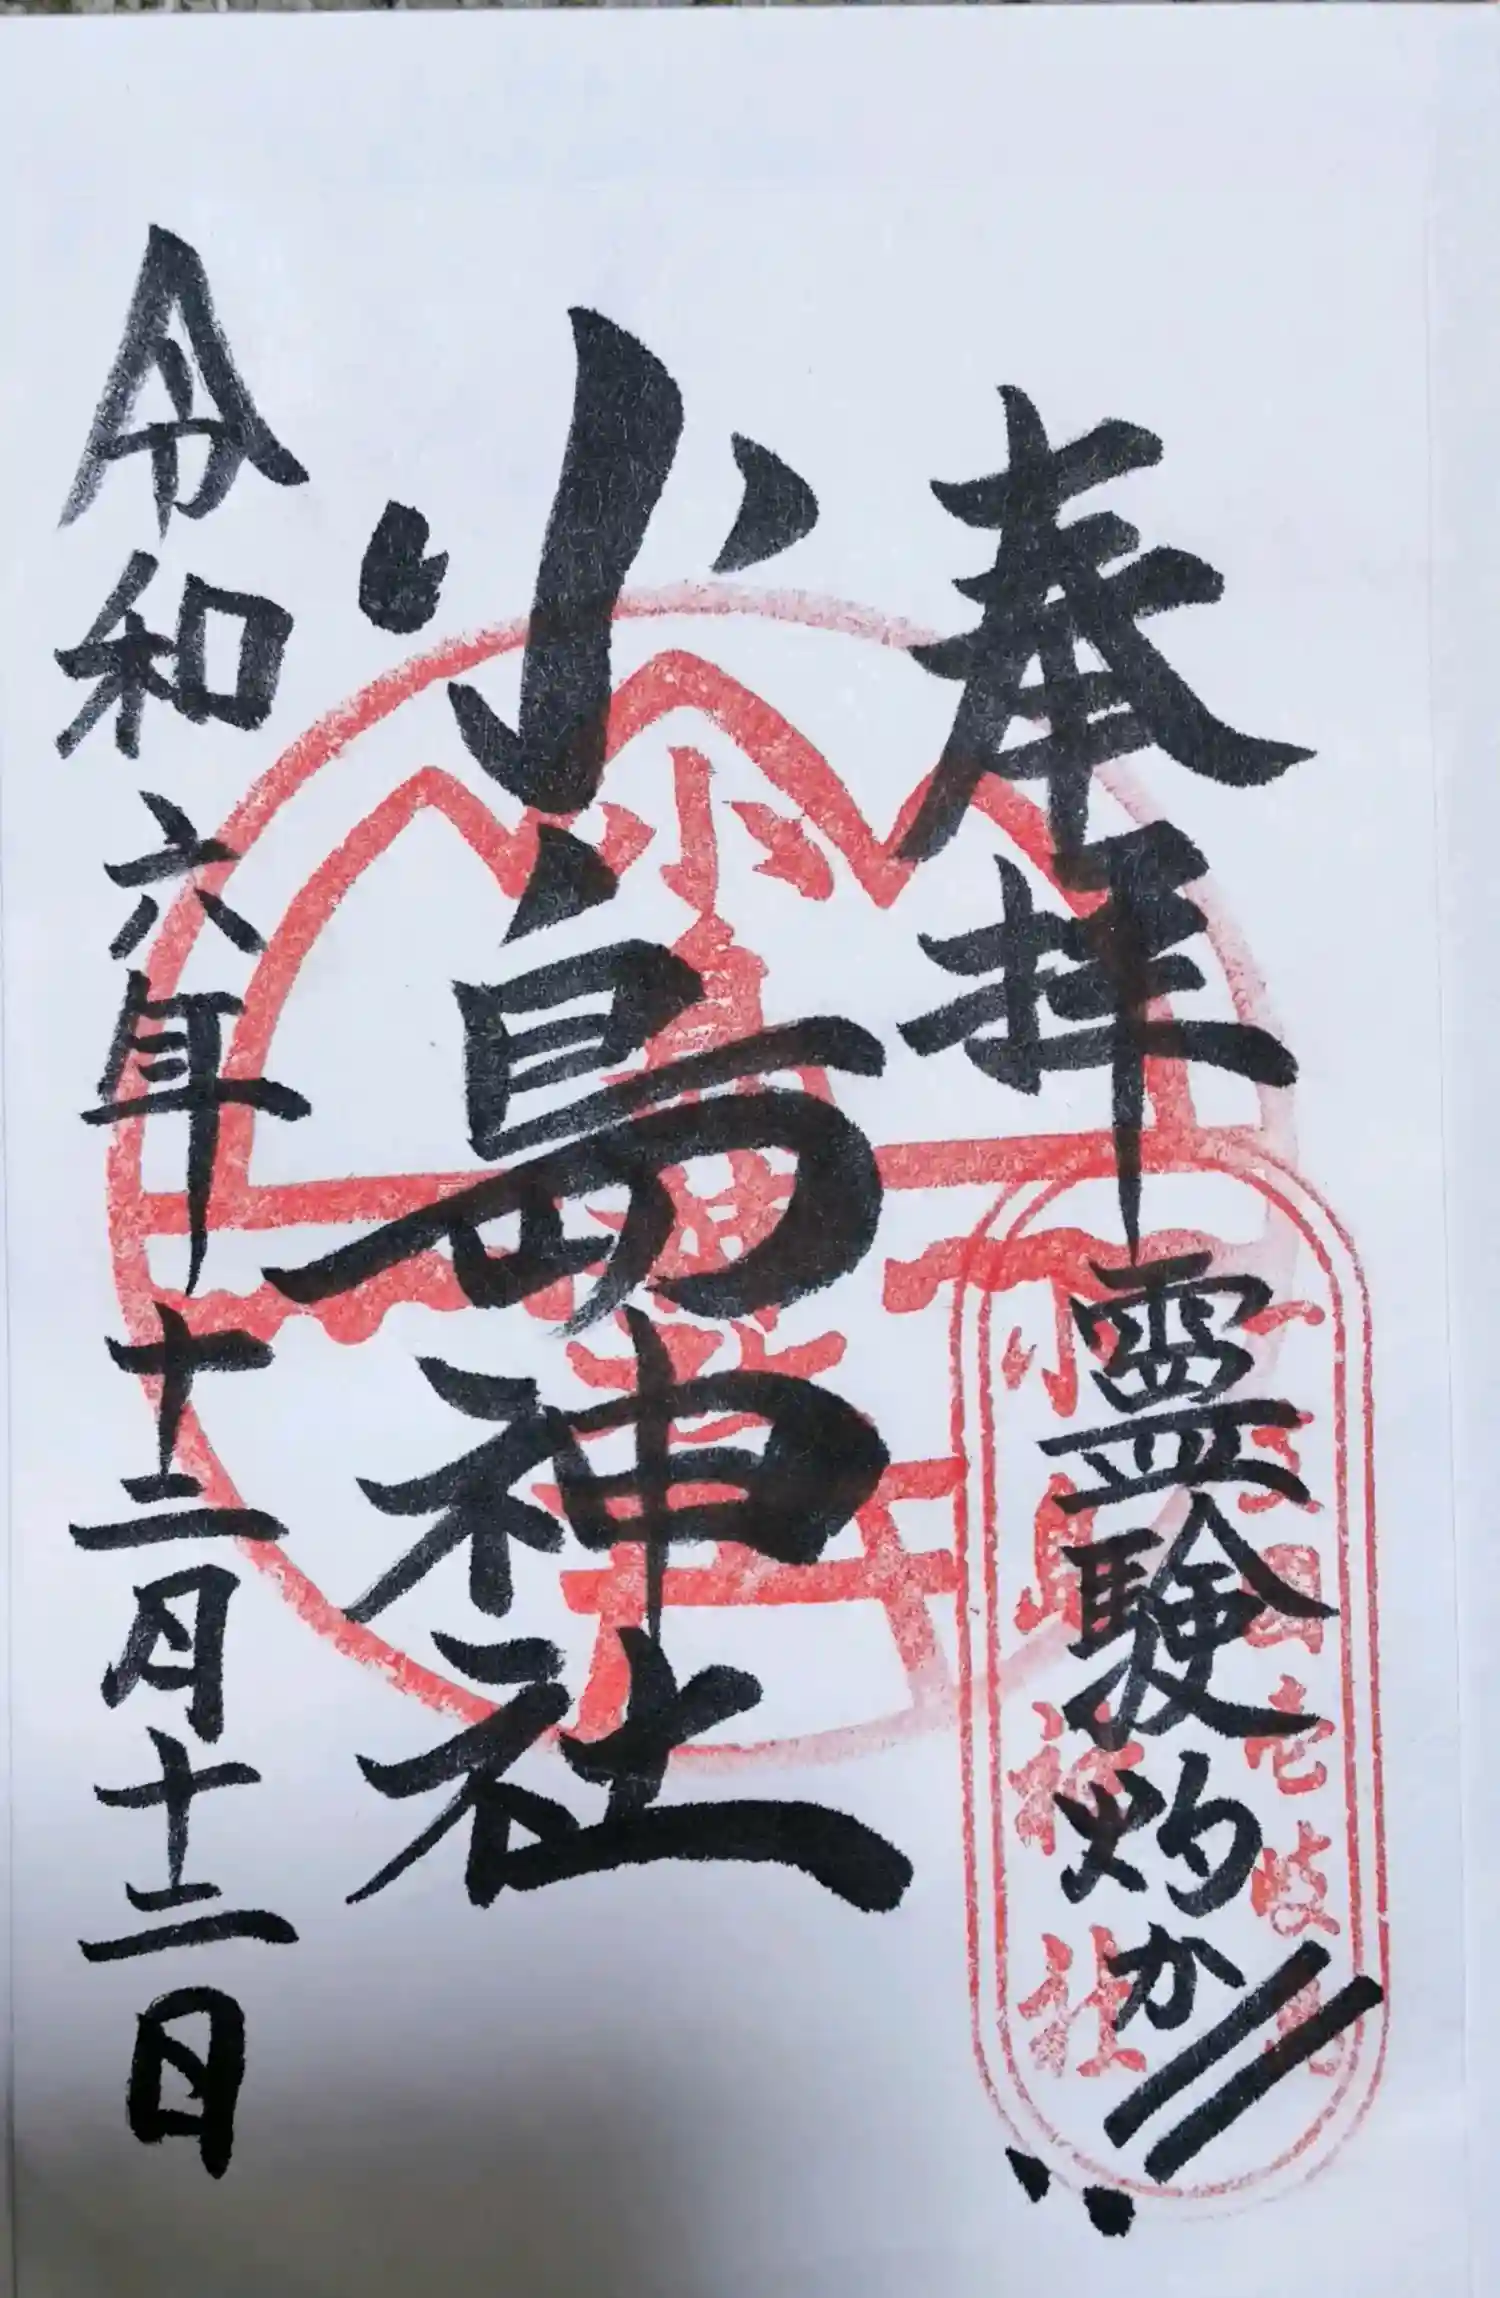 奉拝
霊験灼か!!
小島神社
令和六年十二月十二日
小島神社
小島神社
壱岐